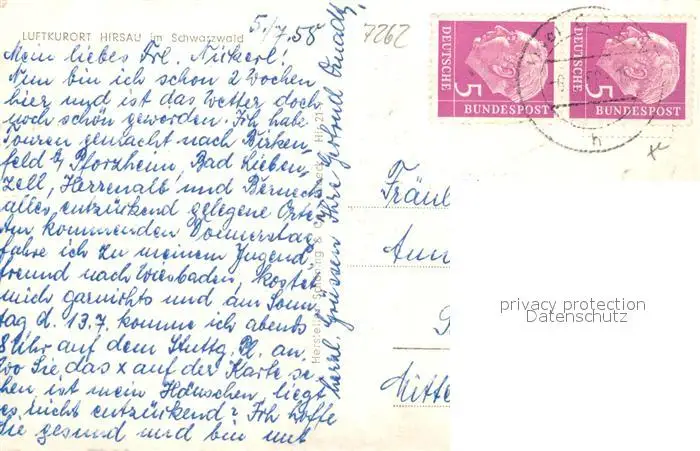 LUFTKURORT HIRSAU im Schwarzwald
5./7.58
7262
Mein liebes Frl. Nickerl!
Nun bin ich schon 2 Wochen
hier und ist das Wetter doch
noch schön geworden. Ich habe
Touren gemacht nach Birken-
feld b/ Pforzheim, Bad Lieben-
zell, Herrenalb und Berneck
alles entzückend gelegene Orte.
Am kommenden Donnerstag
fahre ich zu meinem Jugend-
freund nach Wiesbaden, kostet
mich garnichts und am Sonn-
tag d. 13.7. komme ich abends
8 Uhr auf dem Stuttg. Pl. an.
Wo Sie das x auf der Karte se-
hen ist mein Häuschen, liegt
es nicht entzückend? Ich hoffe
Sie gesund und bin mit
herzl. Grüssen Ihre
Hersteller
DEUTSCHE
BUNDESPOST
5
DEUTSCHE
BUNDESPOST
5
h
Fräul
Ann
Mitte
privacy protection
Datenschutz